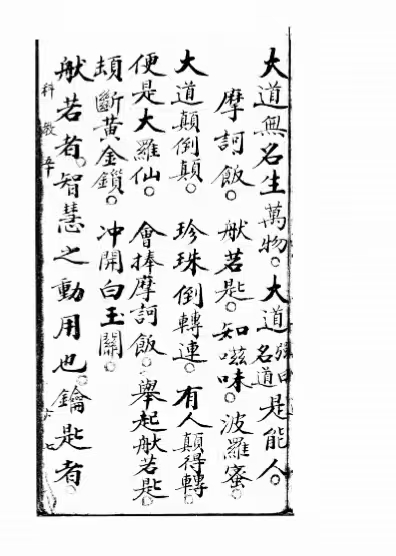 大道無名生萬物。大道强名曰道是能人。
摩訶飯。般若匙。知嗞味。波羅蜜。
大道顛倒顛。珍珠倒轉連。有人顛得轉。
便是大羅仙。會捧摩訶飯。舉起般若匙。
頓斷黃金鎖。冲開白玉關。
般若者。智慧之動用也。鑰匙者。